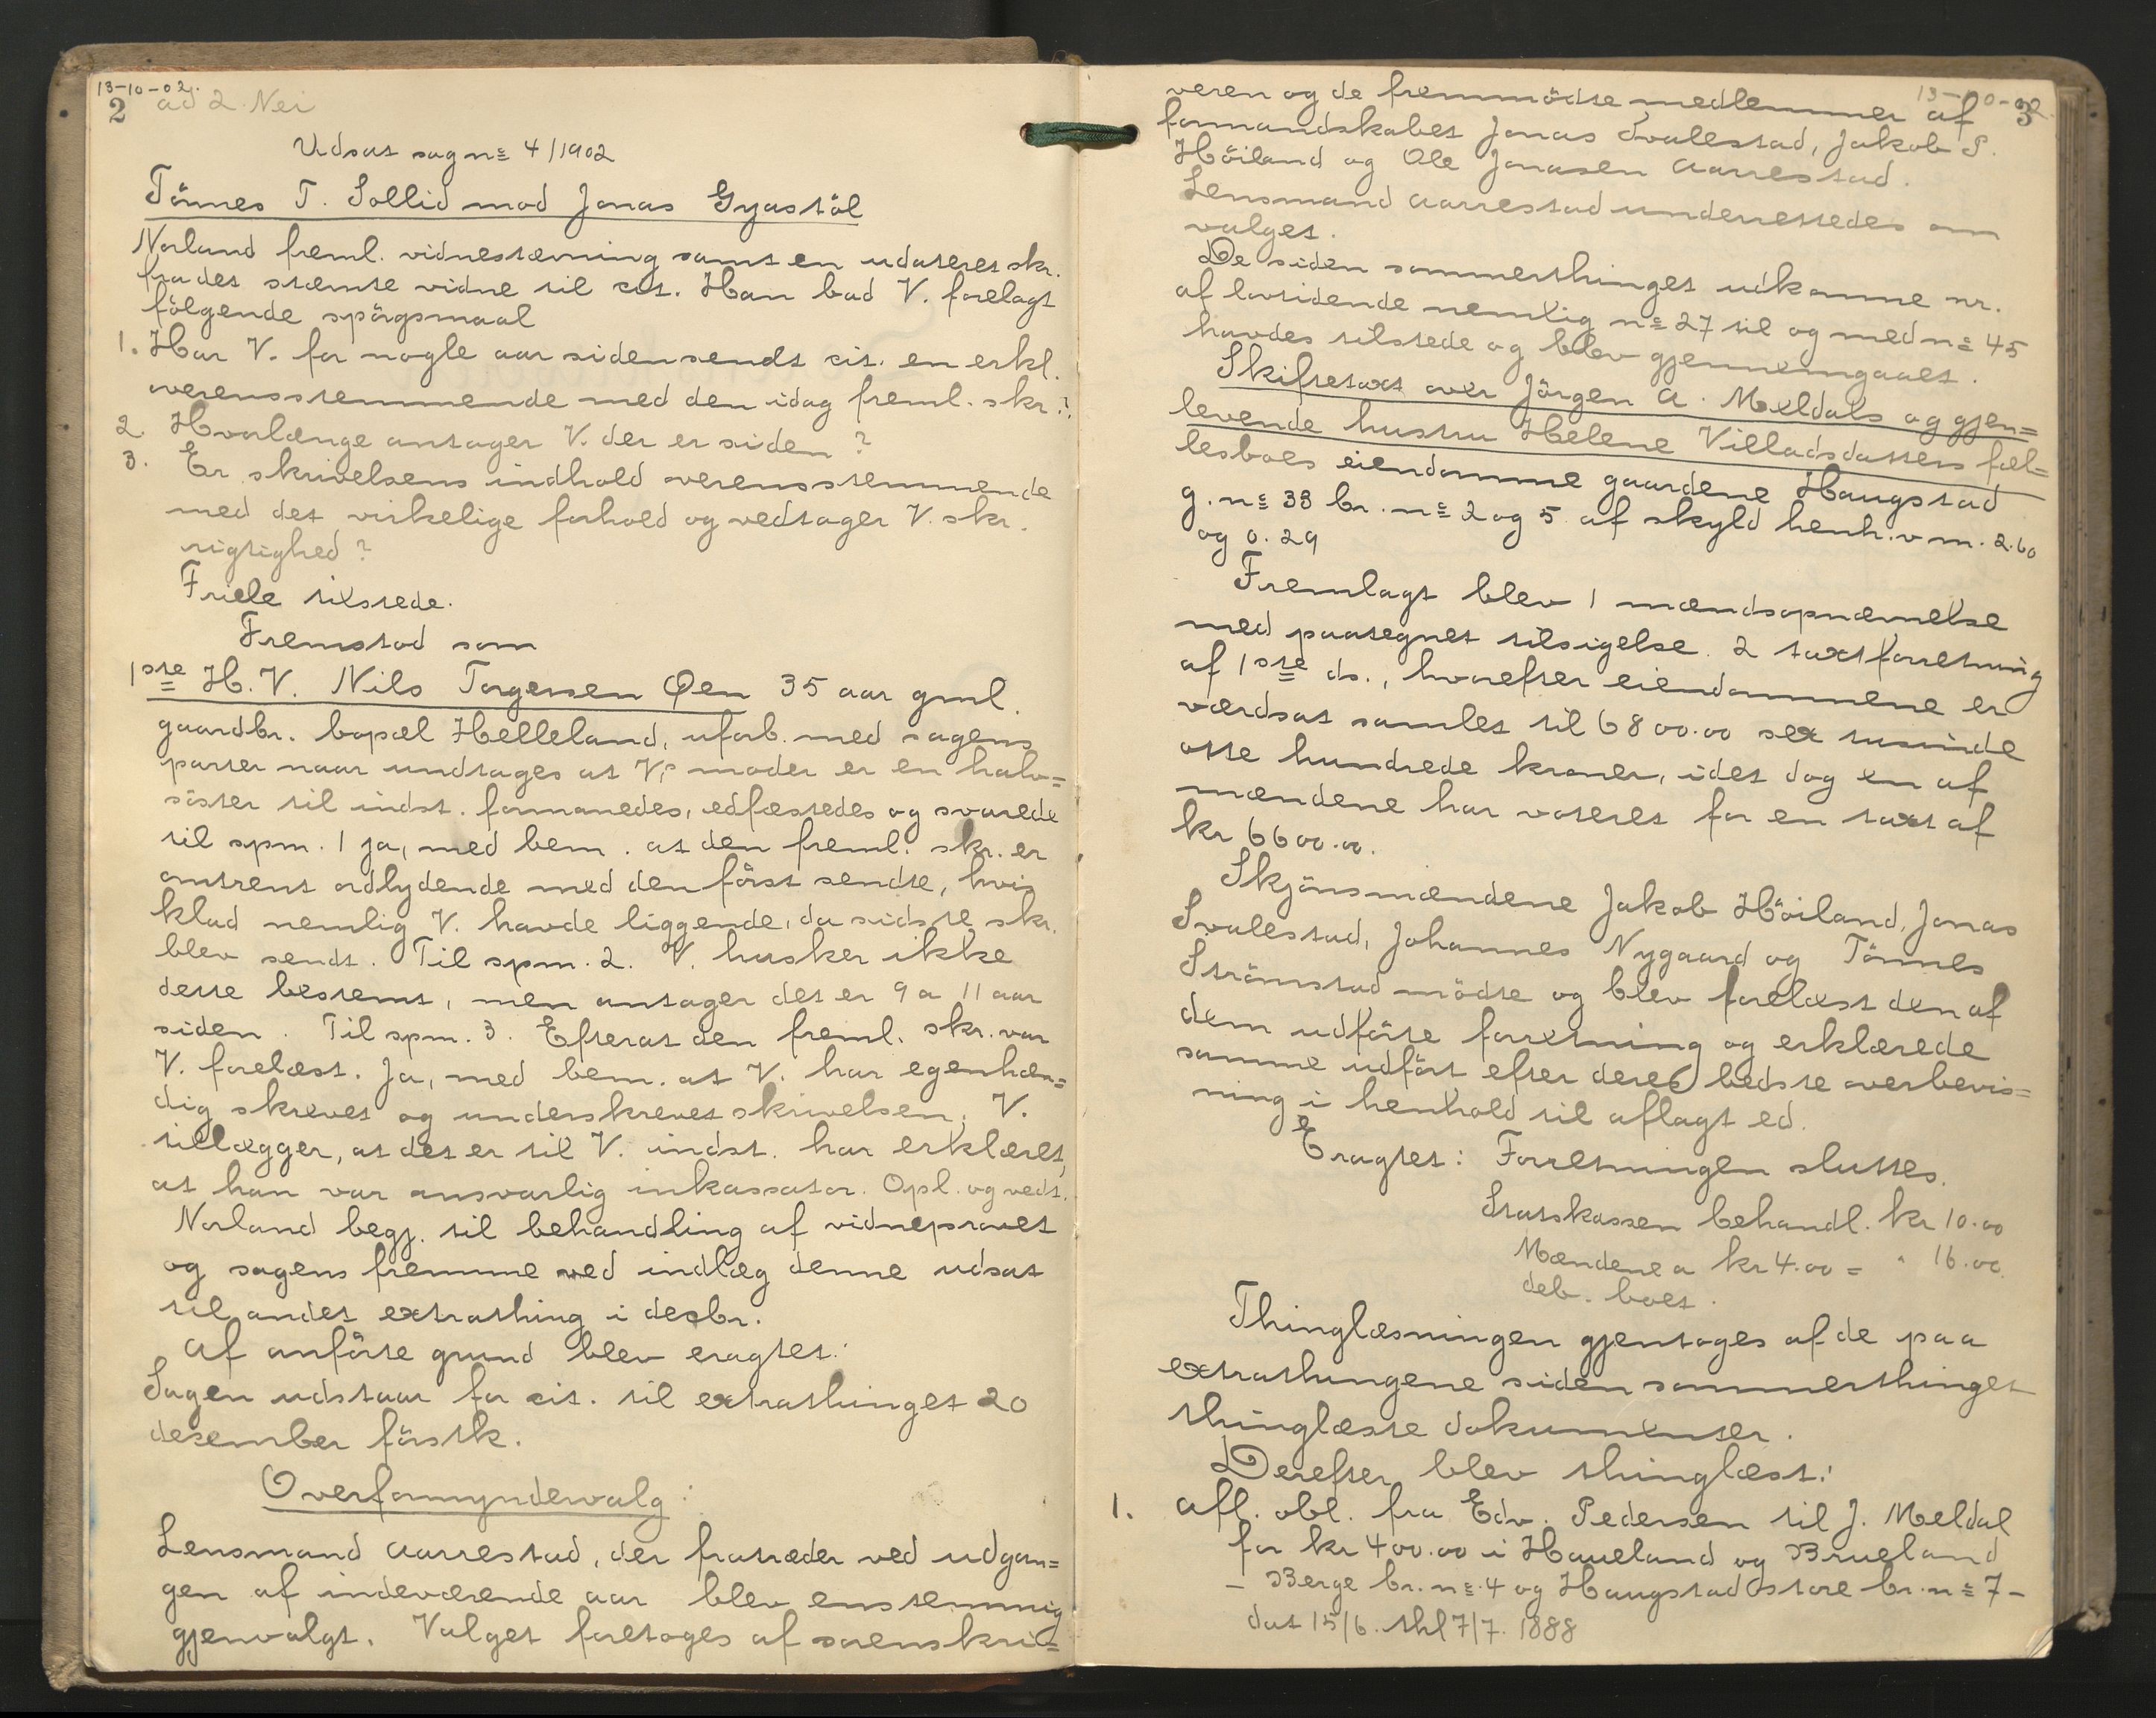 13-10-02.
2 ad 2. Nei
Udsat sag no 4/1902
Tönnes T. Sollid mod Jonas Gyastöl
Norland freml. vidnestævning samt en udateret skr.
fra det stæmte vidne til cit. Han bad V. forelagt
fölgende spörgsmaal
1. Har V. for nogle aar siden sendt cit. en erkl.
overensstemmende med den idag freml. skr.?
2. Hvorlænge antager V. der er siden?
3. Er skrivelsens indhold overensstemmende
med det virkelige forhold og vedtager V. skr.
rigtighed?
Friele tilstede.
Fremstod som
1ste H. V. Nils Torgersen Øen 35 aar gml.
gaardbr. bopæl Helleland, uforb. med sagens
parter naar undtages at V.s moder er en halv=
söster til indst. formanedes, edfæstedes og svarede
til spm. 1 ja, med bem. at den freml. skr. er
omtrent ordlydende med den först sendte, hvis
klad nemlig V. havde liggende, da sidste skr.
blev sendt. Til spm. 2. V. husker ikke
dette bestemt, men antager det er 9 a 11 aar
siden. Til spm. 3. Efterat den freml. skr. var
V. forelæst. Ja, med bem. at V. har egenhæn=
dig skrevet og underskrevet skrivelsen. V.
tillægger, at det er til V. indst. har erklæret,
at han var ansvarlig inkassator. Opl. og vedt.
Norland begj. til behandling af vidneprovet
og sagens fremme ved indlæg denne udsat
til andet extrathing i desbr.
Af anförte grund blev eragtet:
Sagen udstaar for cit. til extrathinget 20
desember förstk.
Overformyndervalg:
Lensmand Aarrestad, der fratræder ved udgan=
gen af indeværende aar blev enstemmig
gjenvalgt. Valget foretoges af sorenskri=
13-10-02.
3
veren og de fremmödte medlemmer af
formandskabet Jonas Svalestad, Jakob S.
Höiland og Ole Jonasen Aarrestad.
Lensmand Aarrestad underrettedes om
valget.
De siden sommerthinget udkomne nr.
af lovtidende nemlig no 27 til og med no 45
havdes tilstede og blev gjennemgaaet.
Skiftetaxt over Jörgen A. Meldals og gjen=
levende hustru Helene Villadsdatters fæl=
lesboes eiendomme gaardene Haugstad
g. no 38 br. no 2 og 5 af skyld henh.v m. 2.60
og 0.29
Fremlagt blev 1 mændsopnævnelse
med paategnet tilsigelse. 2 taxtforretning
af 1ste ds., hvorefter eiendommene er
værdsat samlet til 6800.00 sex tusinde
otte hundrede kroner, idet dog en af
mændene har voteret for en taxt af
kr 6600.00.
Skjönsmændene Jakob Höiland, Jonas
Svalestad, Johannes Nygaard og Tönnes
Strömstad mödte og blev forelæst den af
dem udförte forretning og erklærede
samme udfört efter deres bedste overbevis=
ning i henhold til aflagt ed.
Eragtet: Forretningen sluttes.
Statskassen behandl. kr 10.00
Mændene a kr 4.00 = " 16.00
deb. boet.
Thinglæsningen gjentoges af de paa
extrathingene siden sommerthinget
thinglæste dokumenter.
Derefter blev thinglæst:
1. Afl. obl. fra Edv. Pedersen til J. Meldal
for kr 400.00 i Haueland og Brueland
- Berge br. no 4 og Haugstad store br. no 7 -
dat 15/6. thl 7/7. 1888